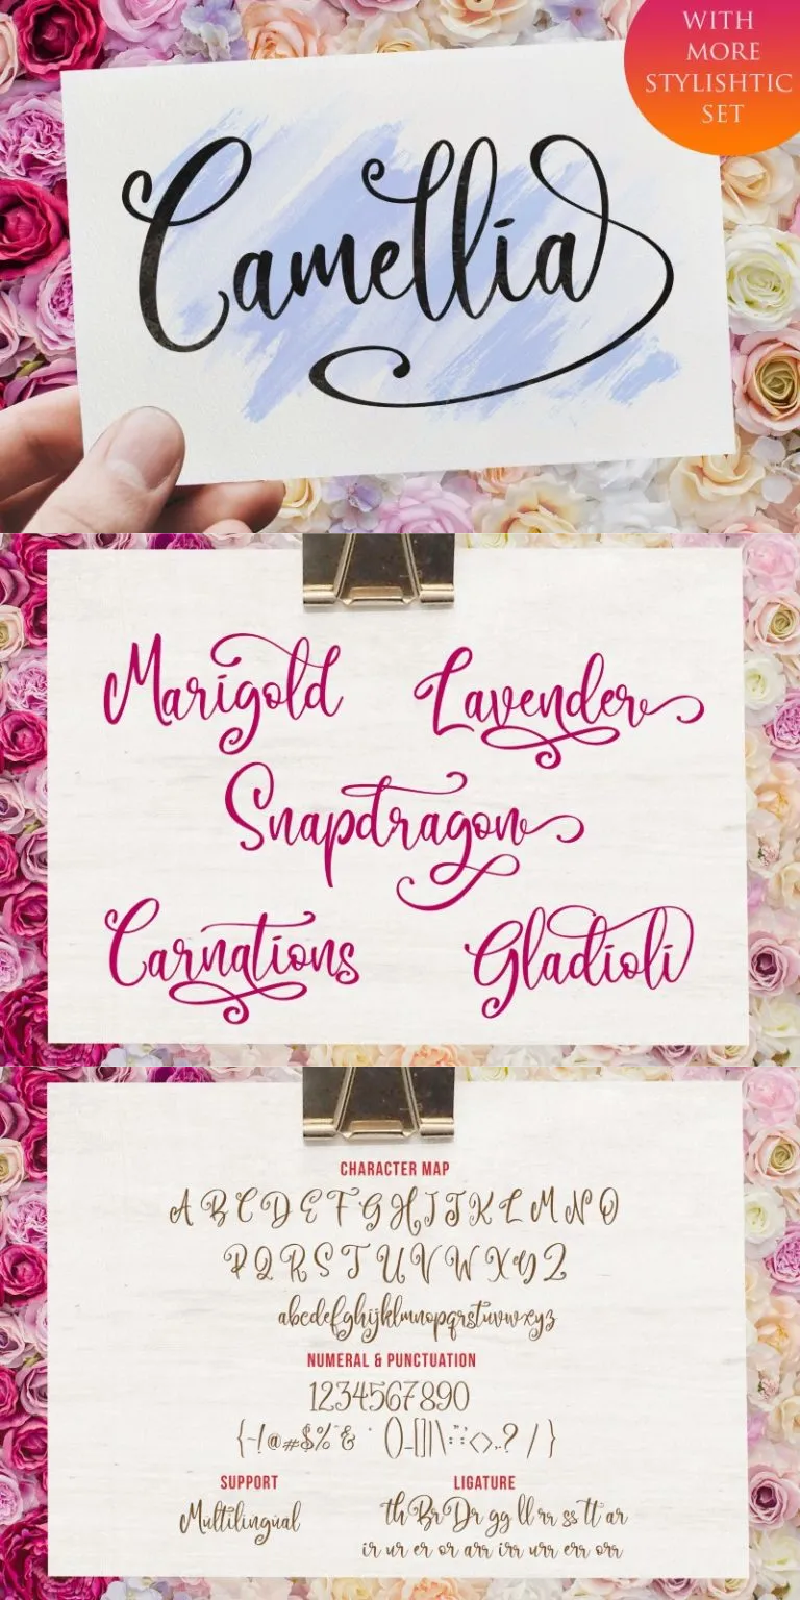 WITH
MORE
STYLISHTIC
SET
Camellia
Marigold Lavender
Snapdragon
Carnations Gladioli
CHARACTER MAP
A B C D E F G H I J K L M N O
P Q R S T U V W X Y Z
abcdefghijklmnopqrstuvwxyz
NUMERAL & PUNCTUATION
1234567890
SUPPORT LIGATURE
Multilingual th Br Dr gg ll rr ss tt ar
ir ur er or arr irr urr err orr